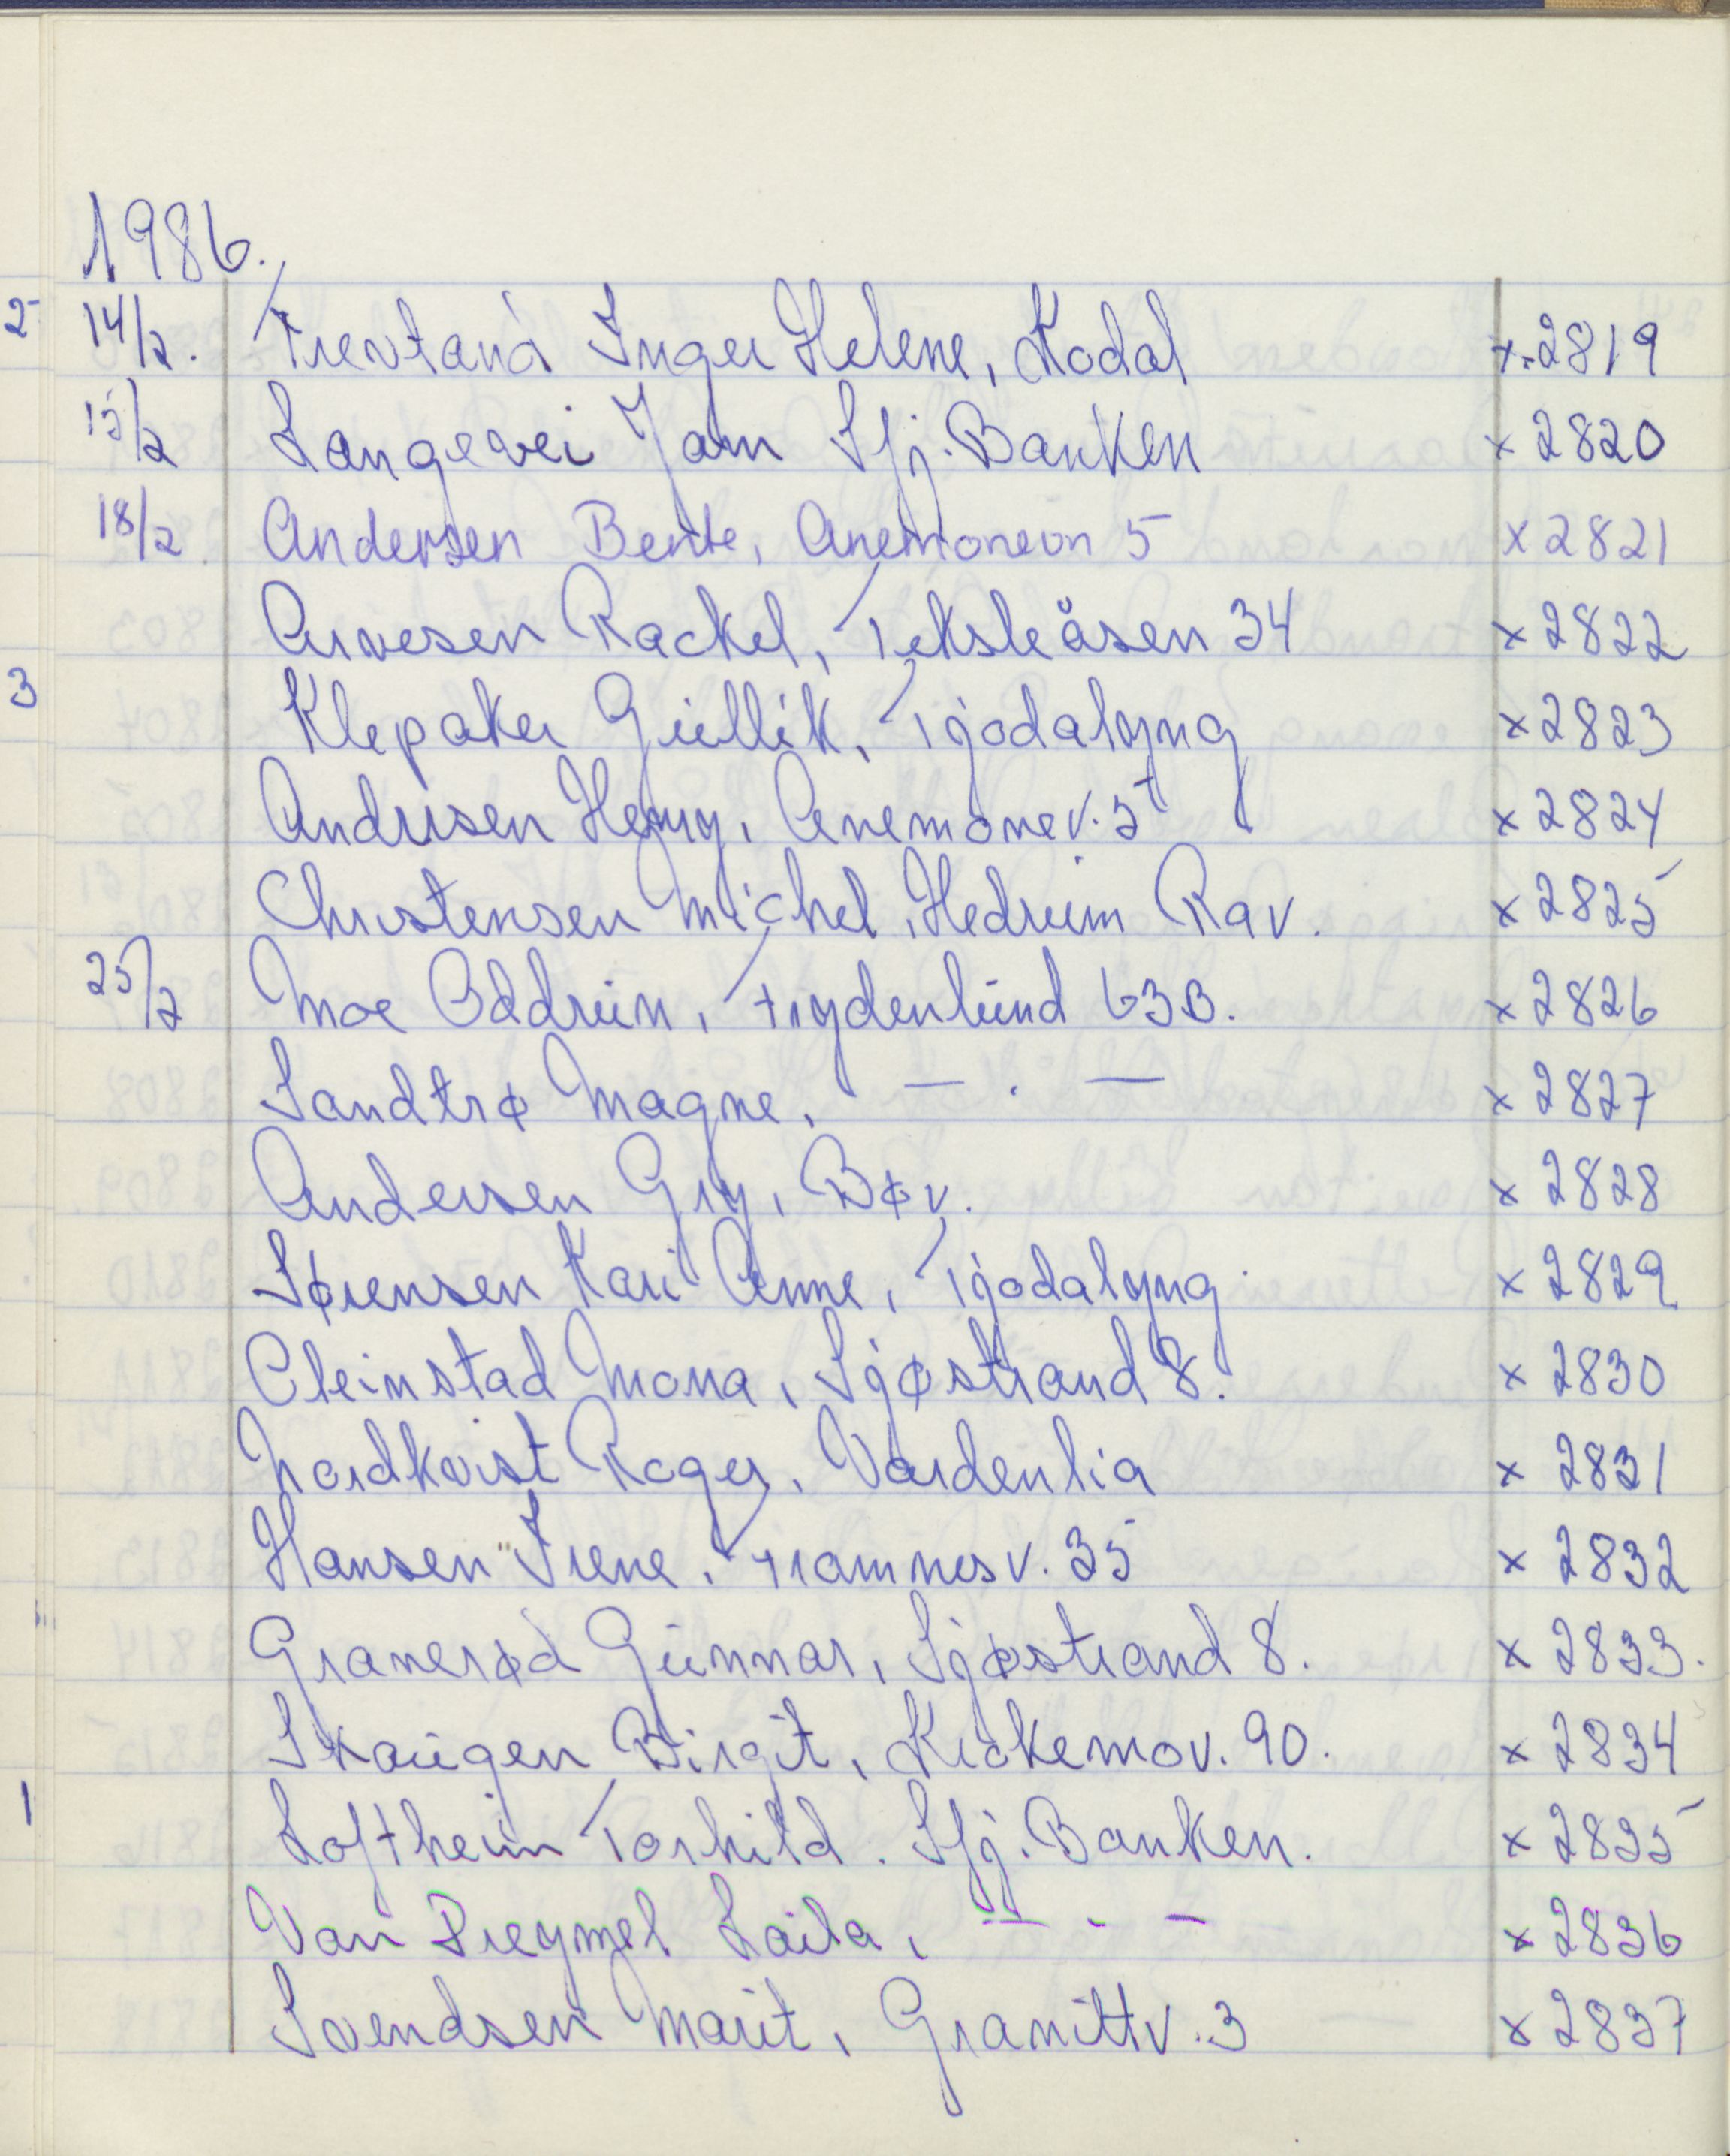 1986.
14/2. Inger Helene, Kodal x 2819
15/2 Langevei Jarn Sfj. Banken x 2820
18/2 Andersen Bente, Anemonevn 5 x 2821
Arvesen Rackel, Teksleåsen 34 x 2822
Klepaker Gullik, Tjodalyng x 2823
Andersen Henry, Anemonev. 5 x 2824
Christensen Michel, Hedrum Rav. x 2825
25/2 Moe Oddrun, Frydenlund 63B. x 2826
Sandtrø Magne, — . — x 2827
Andersen Gry, Bøv. x 2828
Sørensen Kari Anne, Tjodalyng. x 2829
Oleinstad Mona, Sjøstrand 8. x 2830
Nordkvist Roger, Vardenlia x 2831
Hansen Irene, Framnesv. 35 x 2832
Granerød Gunnar, Sjøstrand 8. x 2833.
Skaugen Birgit, Krokemov. 90. x 2834
Loftheim Torhild. Sfj. Banken. x 2835
Van Laila, — . — x 2836
Svendsen Marit, Granittv. 3 x 2837